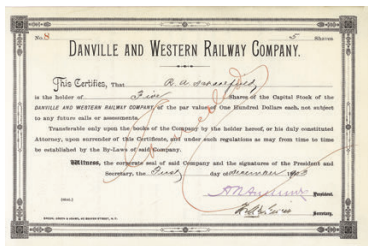 No. 8
5 Shares
DANVILLE AND WESTERN RAILWAY COMPANY.
This Certifies, That R. A.
is the holder of Five Shares of the Capital Stock of the
DANVILLE AND WESTERN RAILWAY COMPANY, of the par value of One Hundred Dollars each, not subject
to any future calls or assessments.
Transferable only upon the books of the Company by the holder hereof, or his duly constituted
Attorney, upon surrender of this Certificate, and under such regulations as may from time to time
be established by the By-Laws of said Company.
Witness, the corporate seal of said Company and the signatures of the President and
Secretary, the First day of December 1903
President.
(SEAL)
Secretary.